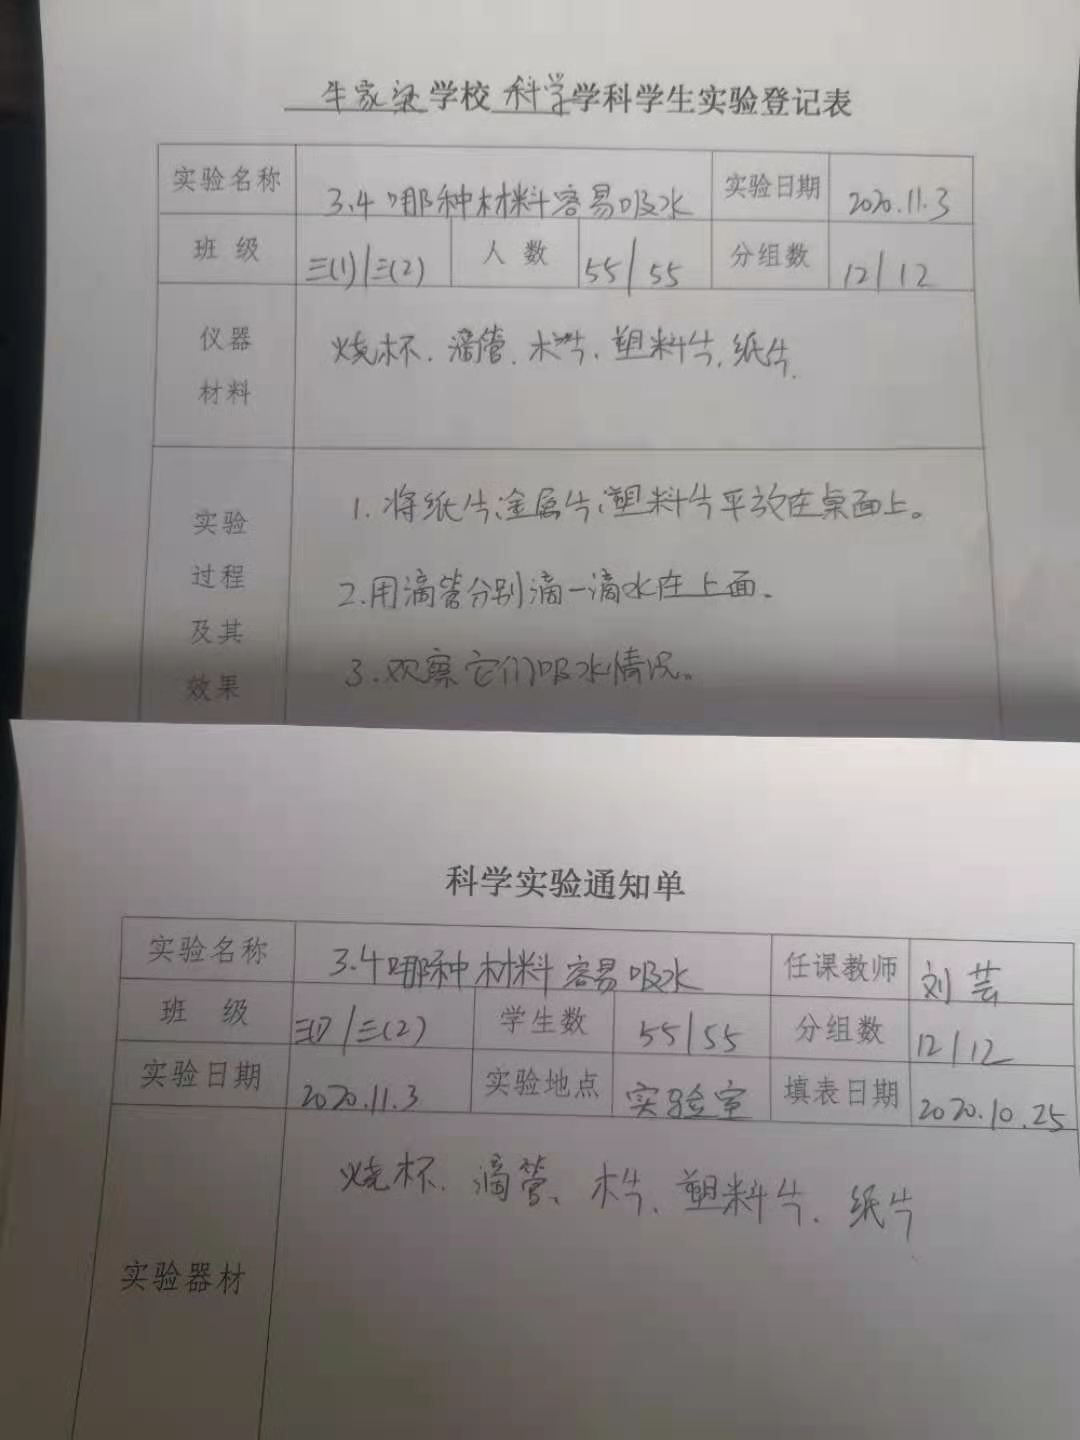 牛家梁学校科学学科学生实验登记表
实验名称 3.4哪种材料容易吸水 实验日期 2020.11.3
班 级 三(1)/三(2) 人 数 55/55 分组数 12/12
仪器材料 烧杯、滴管、木片、塑料片、纸片.
实验过程及其效果
1.将纸片、金属片、塑料片平放在桌面上。
2.用滴管分别滴一滴水在上面、
3.观察它们吸水情况。
科学实验通知单
实验名称 3.4哪种材料容易吸水 任课教师 刘芸
班 级 三(1)/三(2) 学生数 55/55 分组数 12/12
实验日期 2020.11.3 实验地点 实验室 填表日期 2020.10.25
实验器材 烧杯、滴管、木片、塑料片、纸片